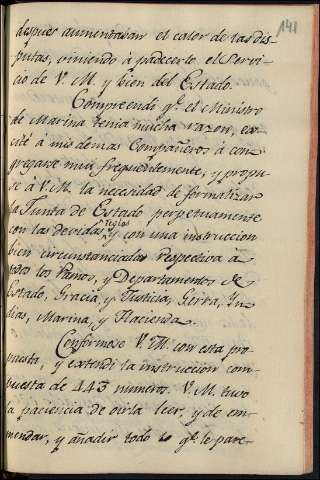 141
despues aumentaban el calor de las dis-
putas, viniendo à padecerlo el Servi-
cio de V. M. y bien del Estado.
Comprendo q.e el Ministro
de Marina tenia mucha razon, ex-
cité à mis demas Compañeros à con-
gregarse mui freqüentemente, y propu-
se à V. M. la necesidad de formalizar
la Junta de Estado perpetuamente
con las devidas reglas y con una instruccion
bien circunstanciada respectiva à
todos los ramos, y Departamentos de
Estado, Gracia, y Justicia, Gerra, Yn-
dias, Marina, y Hacienda.
Conformose V. M. con esta pro-
puesta, y extendi la instruccion com-
puesta de 443 numeros. V. M. tuvo
la paciencia de oirla leer, y de em-
mendar, y añadir todo lo q.e le pare-